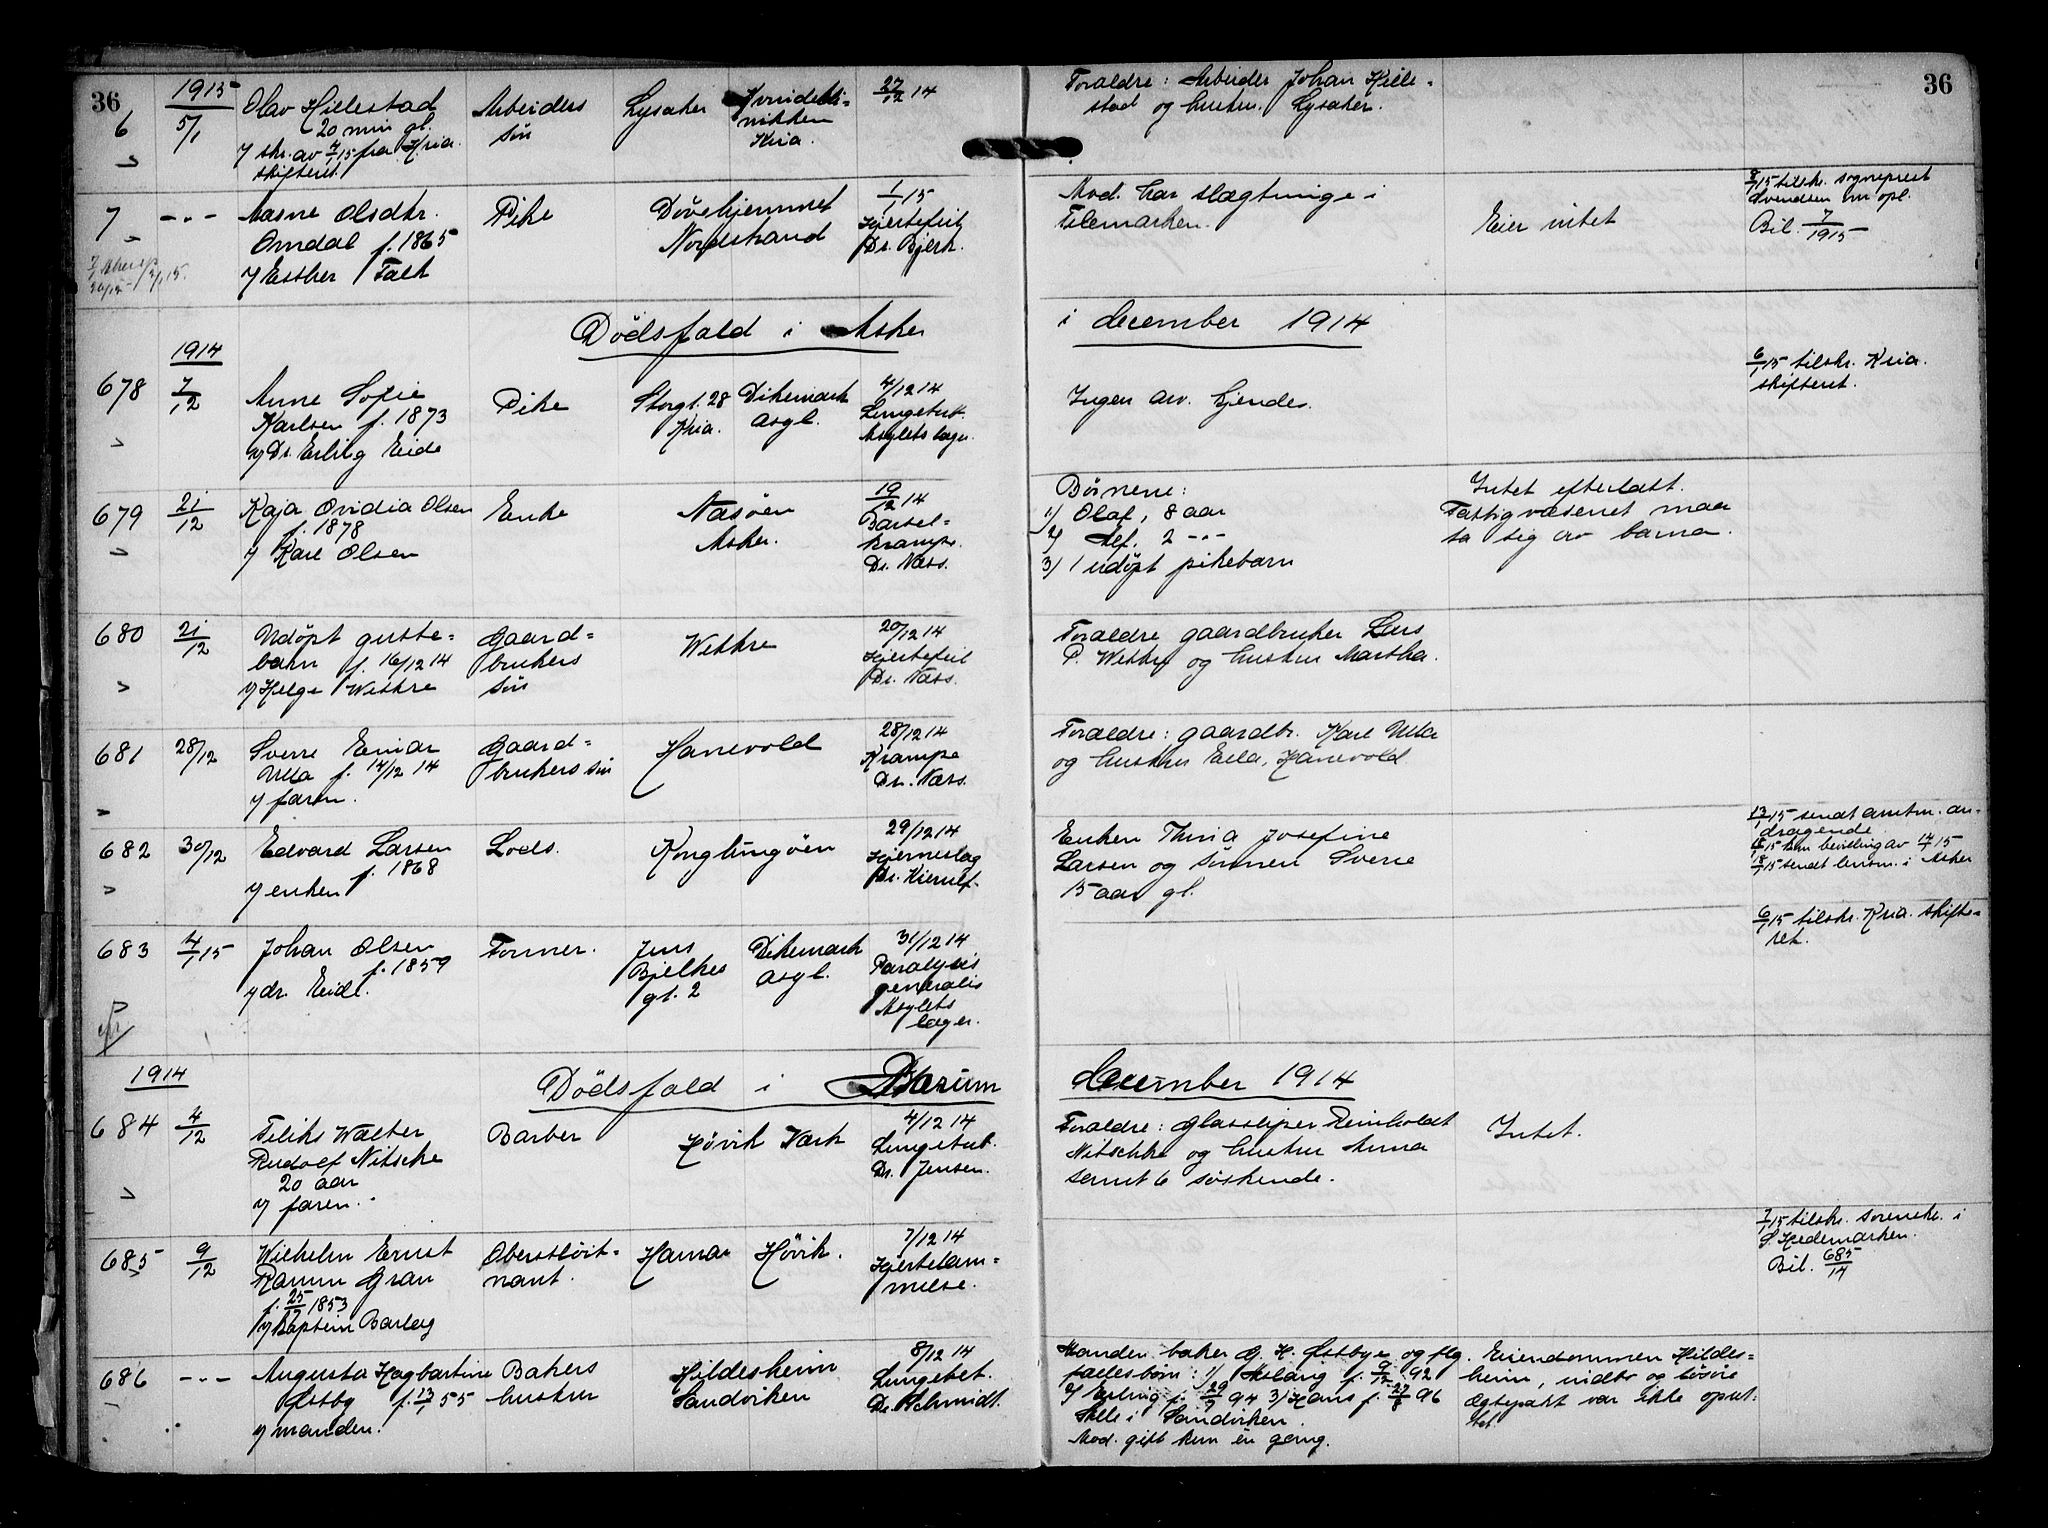 36
36
1915
6
5/1
Olav Hjelestad
20 min gl.
Arbeiders
søn
Lysaker
Kvindekli-
nikken
Kria.
27/12 14
Foraldre: Arbeider Johan Hjele-
stad og hustru. Lysaker.
skr. av 4/1 15 fra Kria.
skifteret.
7
-"-
Aasne Olsdtr.
Omdal f. 1865
v/ Esther Falk
Pike
Døvehjemmet
Nordstrand
1/1 15
Hjertefeil
Dr. Bjerk.
Avd. har slægtninge i
Telemarken.
Eier intet
8/1 15 tilskr. sogneprest
Svendsen om opl.
Bil. 7/1915
Dødsfald i Asker
i december 1914
1914
678
7/12
Anne Sofie
Karlsen f. 1873
v/ Dr. Erling Eide
Pike
Storgt. 28
Kria.
Dikemark
asyl.
4/12 14
Lungetub.
Asylets læge.
Ingen arv. kjendes.
6/1 15 tilskr. Kria.
skifteret.
679
21/12
Kaja Ovidia Olsen
f. 1878
v/ Karl Olsen
Enke
Næsøen
Asker.
19/12 14
Barsel-
krampe.
Dr. Næss.
Børnene:
1/ Olaf, 8 aar
2/ Alf, 2 -"-
3/ 1 udøpt pikebarn
Intet efterlatt.
Fattigvæsenet maa
ta sig av barna.
680
21/12
Udøpt gutte-
barn f. 16/12 14
v/ Helge Wettre
Gaard-
brukers
søn
Wettre
20/12 14
Hjertefeil
Dr. Næss.
Foraldre gaardbruker Lars
P. Wettre og hustru Martha.
681
28/12
Sverre Einar
Ulla f. 14/12 14
v/ faren.
Gaard-
brukers søn
Hanevold
28/12 14
Krampe
Dr. Næss.
Foraldre: gaardbr. Karl Ulla
og hustru Ella, Hanevold
682
30/12
Edvard Larsen
f. 1868
v/ enken
Lods.
Konglungøen
29/12 14
Hjerneslag
Dr. Kierulf.
Enken Thina Josefine
Larsen og sønnen Sverre
15 aar gl.
13/1 15 sendt amtm. an-
dragende
15 kom bevilling av 14/1 15
18/1 15 sendt lensm. i Asker
683
4/1 15
Johan Olsen
f. 1859
v/ dr. Eide.
Former.
Jens
Bjelkes
gt. 2
Dikemark
asyl.
31/12 14
Paralysis
generalis
Asylets
læge.
6/1 15 tilskr. Kria. skifte-
ret.
1914
Dødsfald i Bærum
december 1914
684
4/12
Feliks Walter
Rudolf Nitschke
20 aar
v/ faren.
Barber
Høvik Værk
4/12 14
Lungetub.
Dr. Jensen.
Foraldre: Glassliper Reinholdt
Nitschke og hustru Anna
samt 6 søskende.
Intet.
685
9/12
Wilhelm Ernst
Ramm Gran
f. 25/12 1853
v/ Kaptein Barlag
Oberstløit-
nant.
Hamar
Høvik.
7/12 14
Hjertelam-
melse.
7/1 15 tilskr. sorenskr. i
S. Hedemarken.
Bil. 685/14
686
-"-
Augusta Hagbartine
Østby f. 13/1 55
v/ manden.
Bakers
hustru
Hildesheim
Sandviken
8/12 14
Lungebet.
Dr. Schmidt.
Manden baker G. H. Østbye og flg.
fællesbørn: 1/ Aslaug f. 9/12 92
2/ Erling f. 29/7 94 3/ Hans f. 27/8 96
Alle i Sandviken.
Avd. gift kun én gang.
Eiendommen Hildes-
heim, indbo og løsøre
Ægtepakt var ikke opret-
tet.